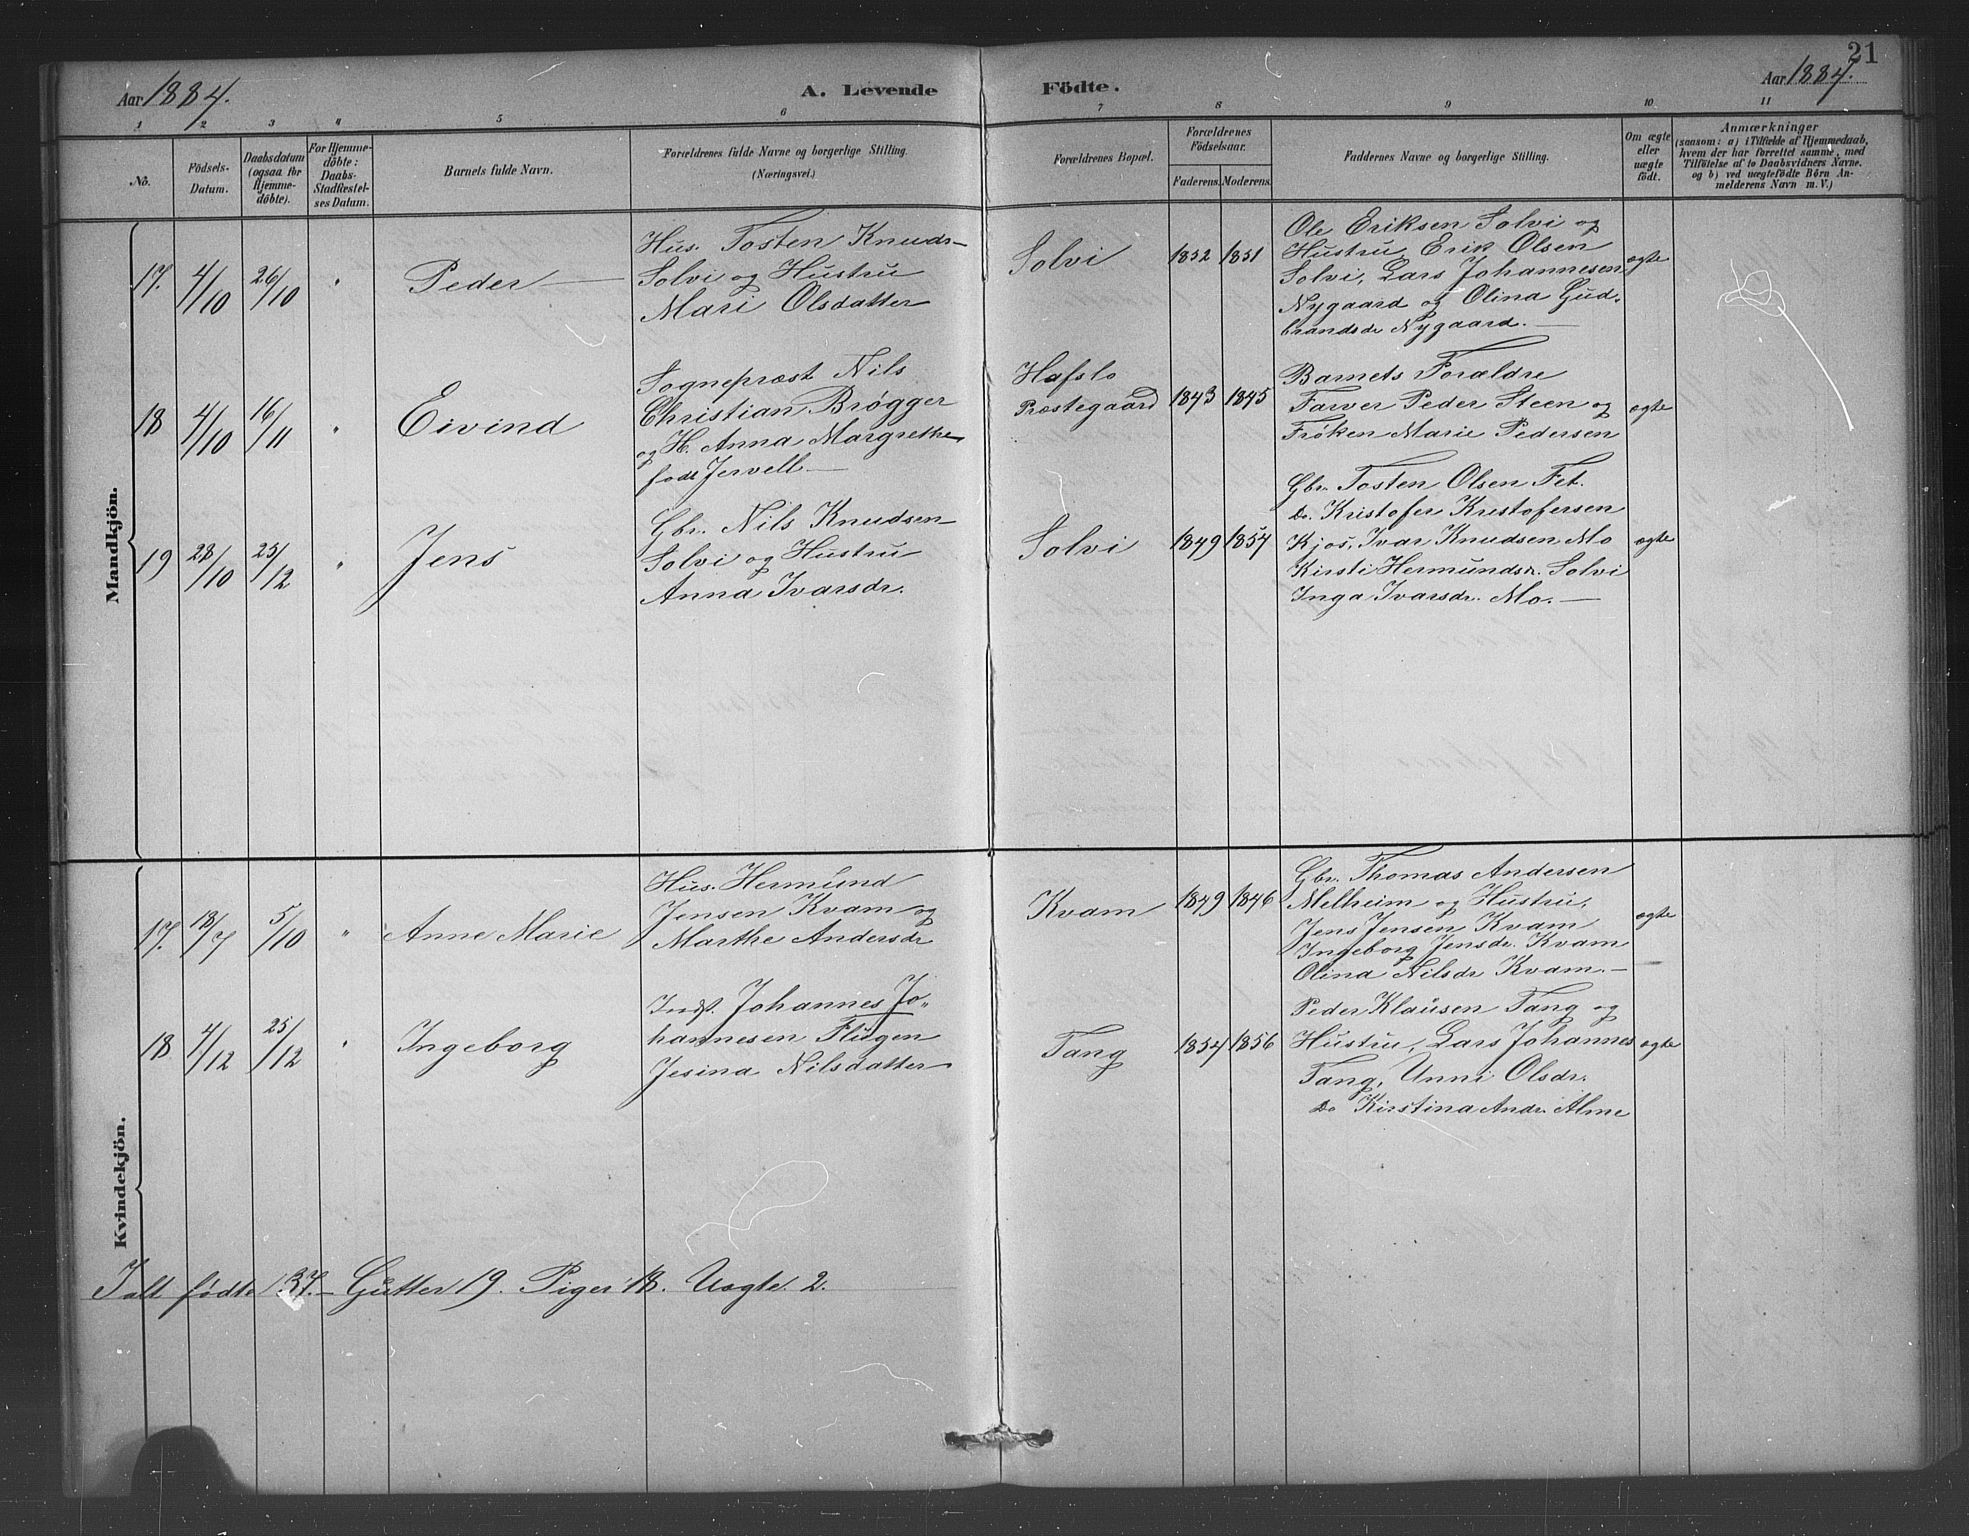 21
Aar 1884. A. Levende Födte. Aar 1884.
1 2 3 4 5 6 7 8 9 10 11
No.
Födsels-
Datum.
Daabsdatum
(ogsaa for
Hjemme-
döbte).
For Hjemme-
döbte:
Daabs-
Stadfæstel-
ses Datum.
Barnets fulde Navn.
Forældrenes fulde Navne og borgerlige Stilling.
(Næringsvei.)
Forældrenes Bopæl.
Forældrenes
Födselsaar.
Faderens. Moderens.
Faddernes Navne og borgerlige Stilling.
Om ægte
eller
uægte
födt.
Anmærkninger
(saasom: a) i Tilfælde af Hjemmedaab,
hvem der har forrettet samme, med
Tilföielse af to Daabsvidners Navne.
og b) ved uægtefödte Börn An-
melderens Navn m. V.)
Mandkjön.
17. 4/10 26/10 " Peder —
Hus. Tosten Knuds-
Solvi og Hustru
Mari Olsdatter
Solvi 1852 1851
Ole Eriksen Solvi og
Hustru, Erik Olsen
Solvi, Lars Johannesen
Nygaard og Olina Gud-
brandsdr Nygaard. —
ægte
18 4/10 16/11 " Eivind
Sognepræst Nils
Christian Brøgger
og H. Anna Margrethe
født Jervell —
Hafslo
Præstegaard 1843 1845
Barnets Forældre
Farver Peder Steen og
Frøken Marie Pedersen
ægte
19 28/10 25/12 " Jens
Gbr. Nils Knudsen
Solvi og Hustru
Anna Ivarsdr.
Solvi 1849 1854
Gbr. Tosten Olsen Fet.
Do. Kristofer Kristofersen
Kjos, Ivar Knudsen Mo
Kirsti Hermundsdr. Solvi
Inga Ivarsdr. Mo. —
ægte
Kvindekjön.
17. 18/7 5/10 " Anne Marie
Hus. Hermund
Jensen Kvam og
Marthe Andersdr
Kvam 1849 1846
Gbr. Thomas Andersen
Melheim og Hustru,
Jens Jensen Kvam
Ingeborg Jensdr. Kvam
Olina Nilsdr Kvam. —
ægte
18 4/12 25/12 " Ingeborg
Indst. Johannes Jo-
hannesen Flugen
Jesina Nilsdatter
Tang 1854 1856
Peder Klausen Tang og
Hustru, Lars Johannes
Tang, Unni Olsdr.
Do Kirstina Andr. Alme
ægte
I alt fødte 37. — Gutter 19. Piger 18. Uægte 2.